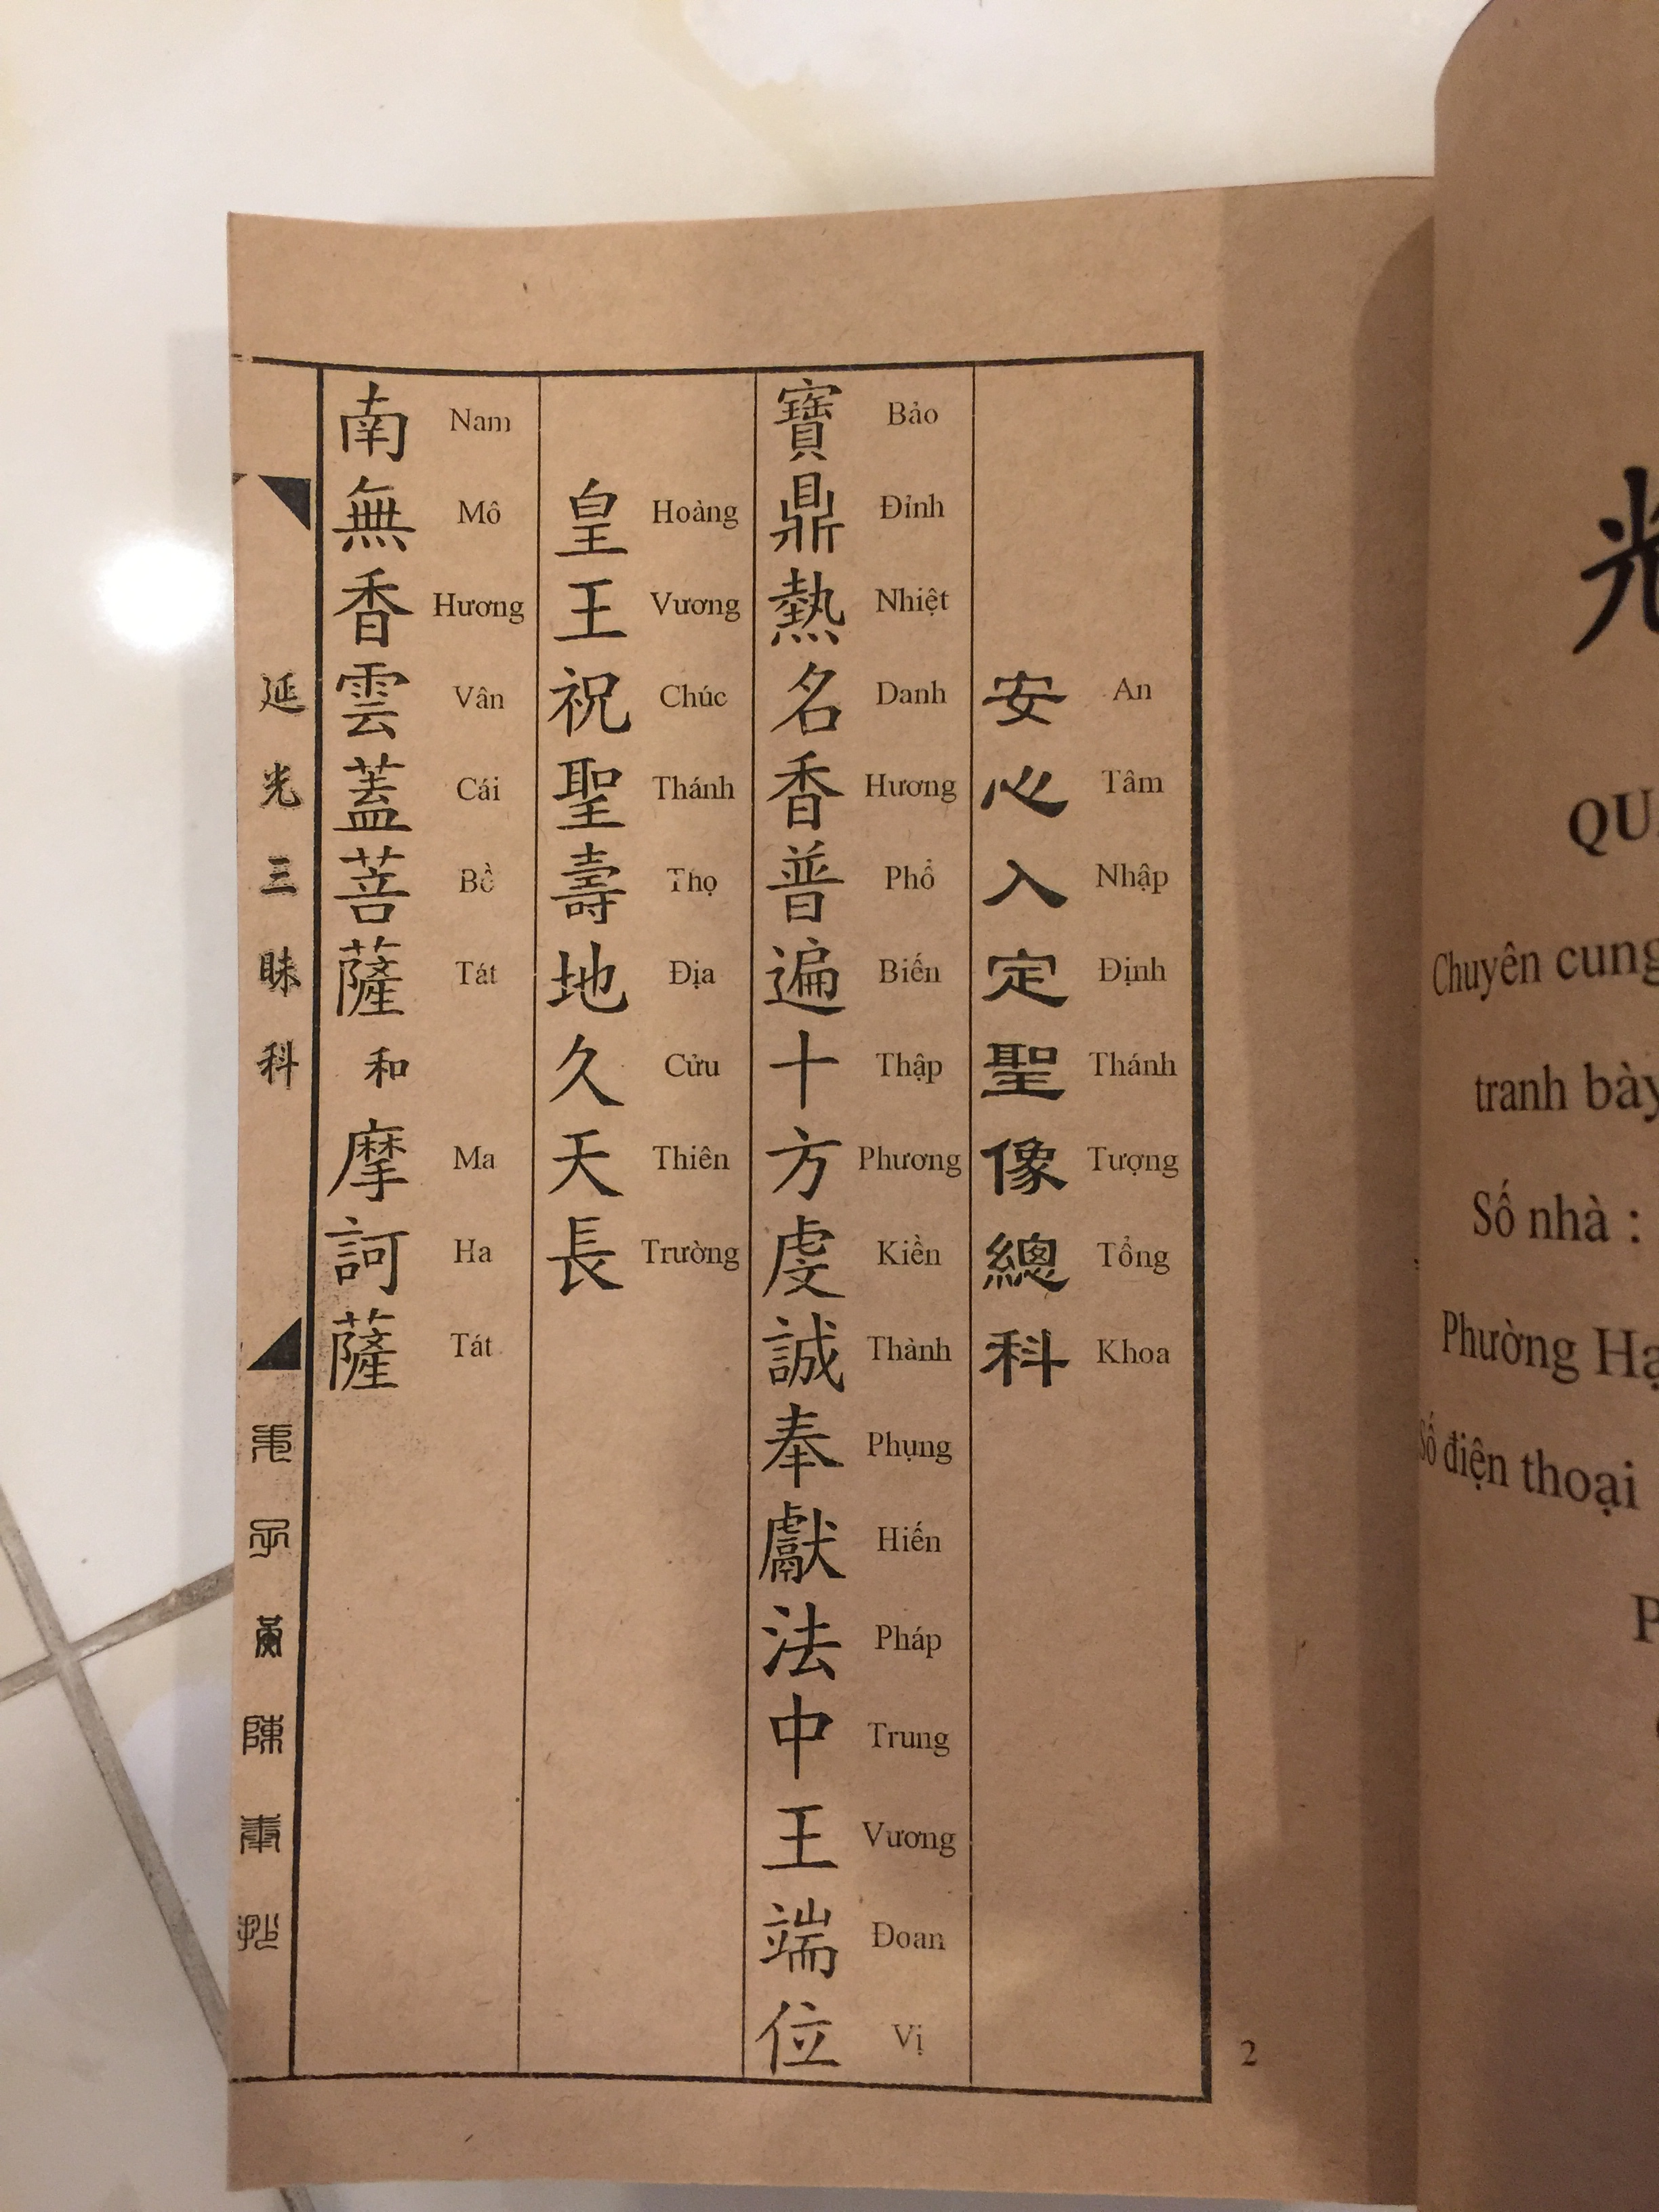 安心入定聖像總科
An Tâm Nhập Định Thánh Tượng Tổng Khoa
寶鼎熱名香普遍十方虔誠奉獻法中王端位
Bảo Đỉnh Nhiệt Danh Hương Phổ Biến Thập Phương Kiền Thành Phụng Hiến Pháp Trung Vương Đoan Vị
皇王祝聖壽地久天長
Hoàng Vương Chúc Thánh Thọ Địa Cửu Thiên Trường
南無香雲蓋菩薩和摩訶薩
Nam Mô Hương Vân Cái Bồ Tát Ma Ha Tát
延光三昧科
弟子黃陳奉抄
2
光
Chuyên cung
tranh bày
Số nhà :
Phường
Số điện thoại